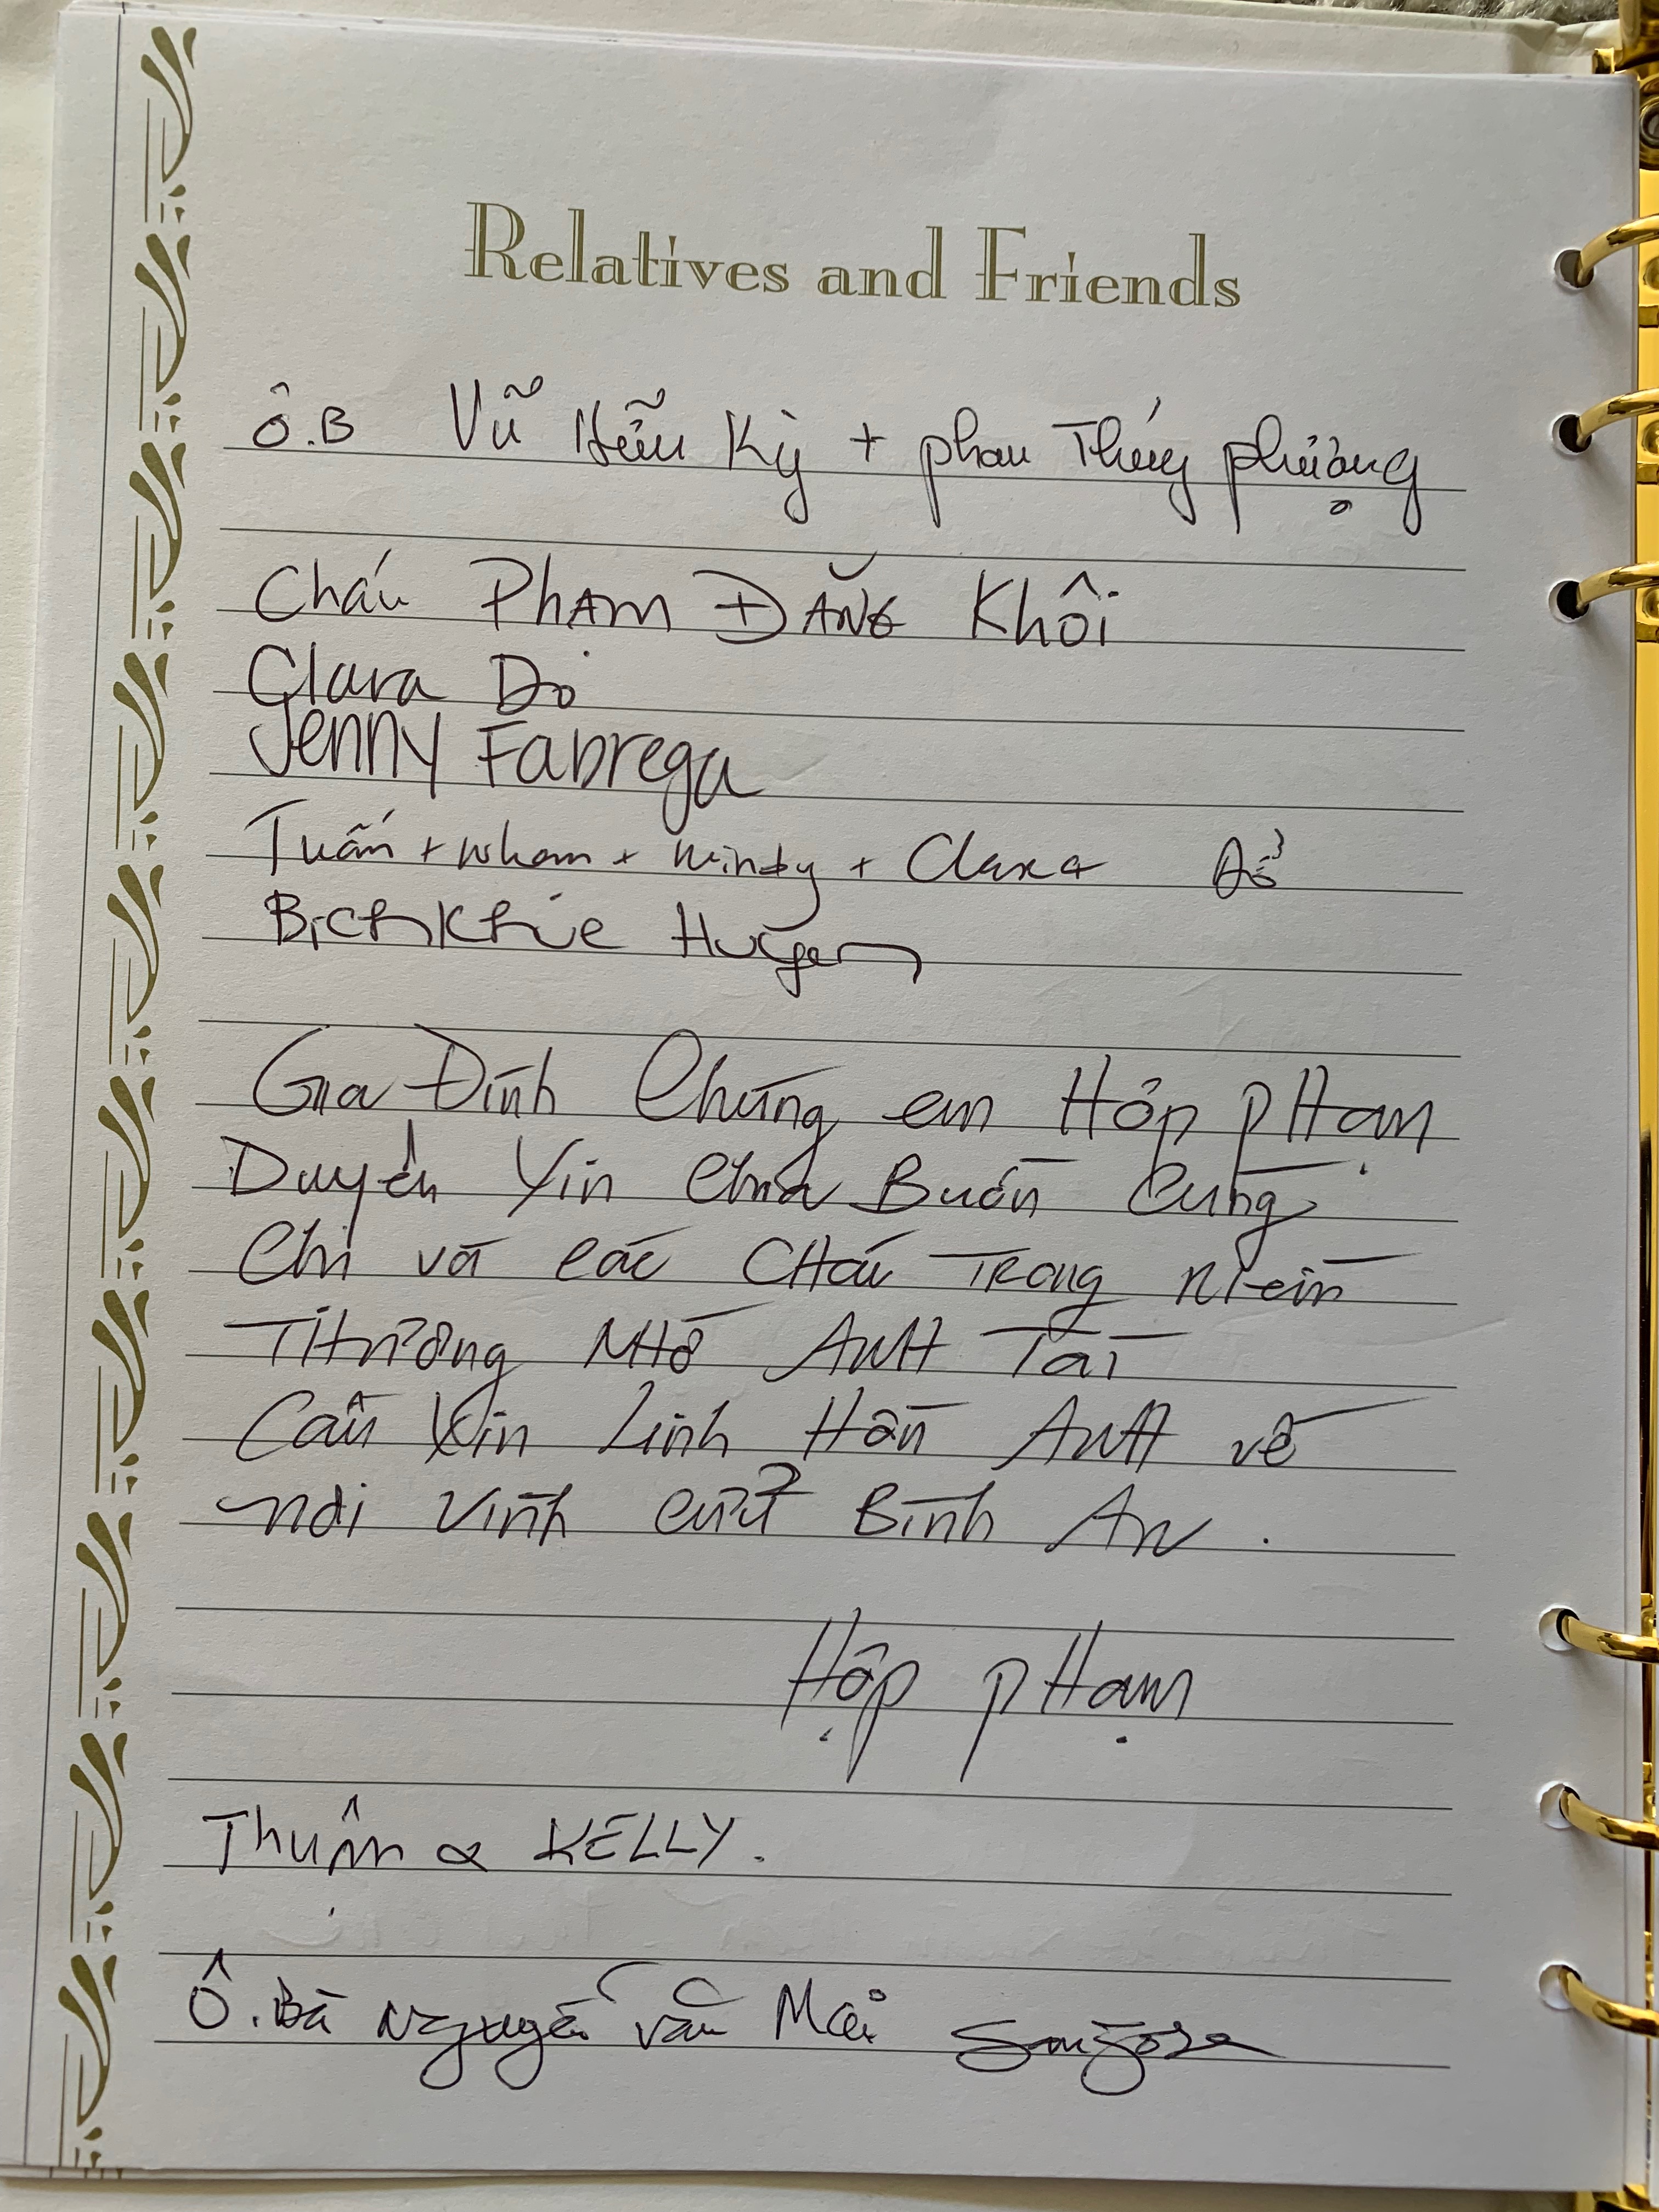 Relatives and Friends
Ô.B Vũ Hữu Kỳ + Phan Thúy Phượng
Cháu PHẠM ĐĂNG Khôi
Clara Do
Jenny Fabrega
Tuấn + Nham + Windy + Clara Đỗ
Bich Khue Huyen
Gia Đình Chúng em Hợp PHạm
Duyên Xin Chia Buồn Cùng
Chị và các CHáu TRong niềm
THương NHớ ANH Tài
Cầu Xin Linh Hồn ANH về
nơi Vĩnh Cửu Bình An.
Hợp PHạm
Thuận & KELLY.
Ô. Bà Nguyễn Văn Mại